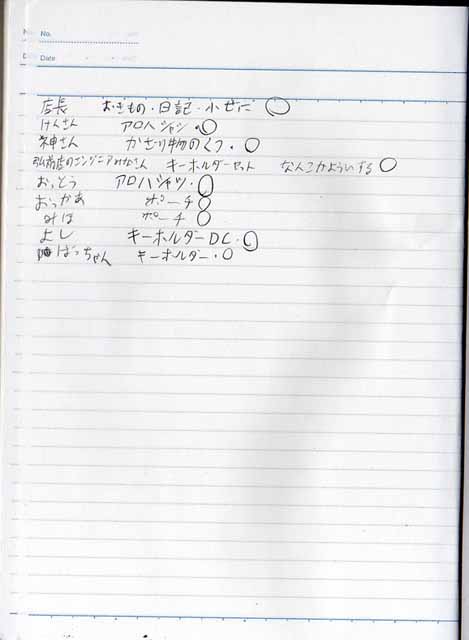 No.
Date
店長 おきもの・日記・小ぜに ○
けんさん アロハシャツ・○
神さん かざり物のくつ・○
弘前店のエンジニアみなさん キーホルダーセット なんこかよういする ○
おっとう アロハシャツ・○
おっかあ ポーチ ○
みほ ポーチ ○
よし キーホルダー DC・○
ばっちゃん キーホルダー・○